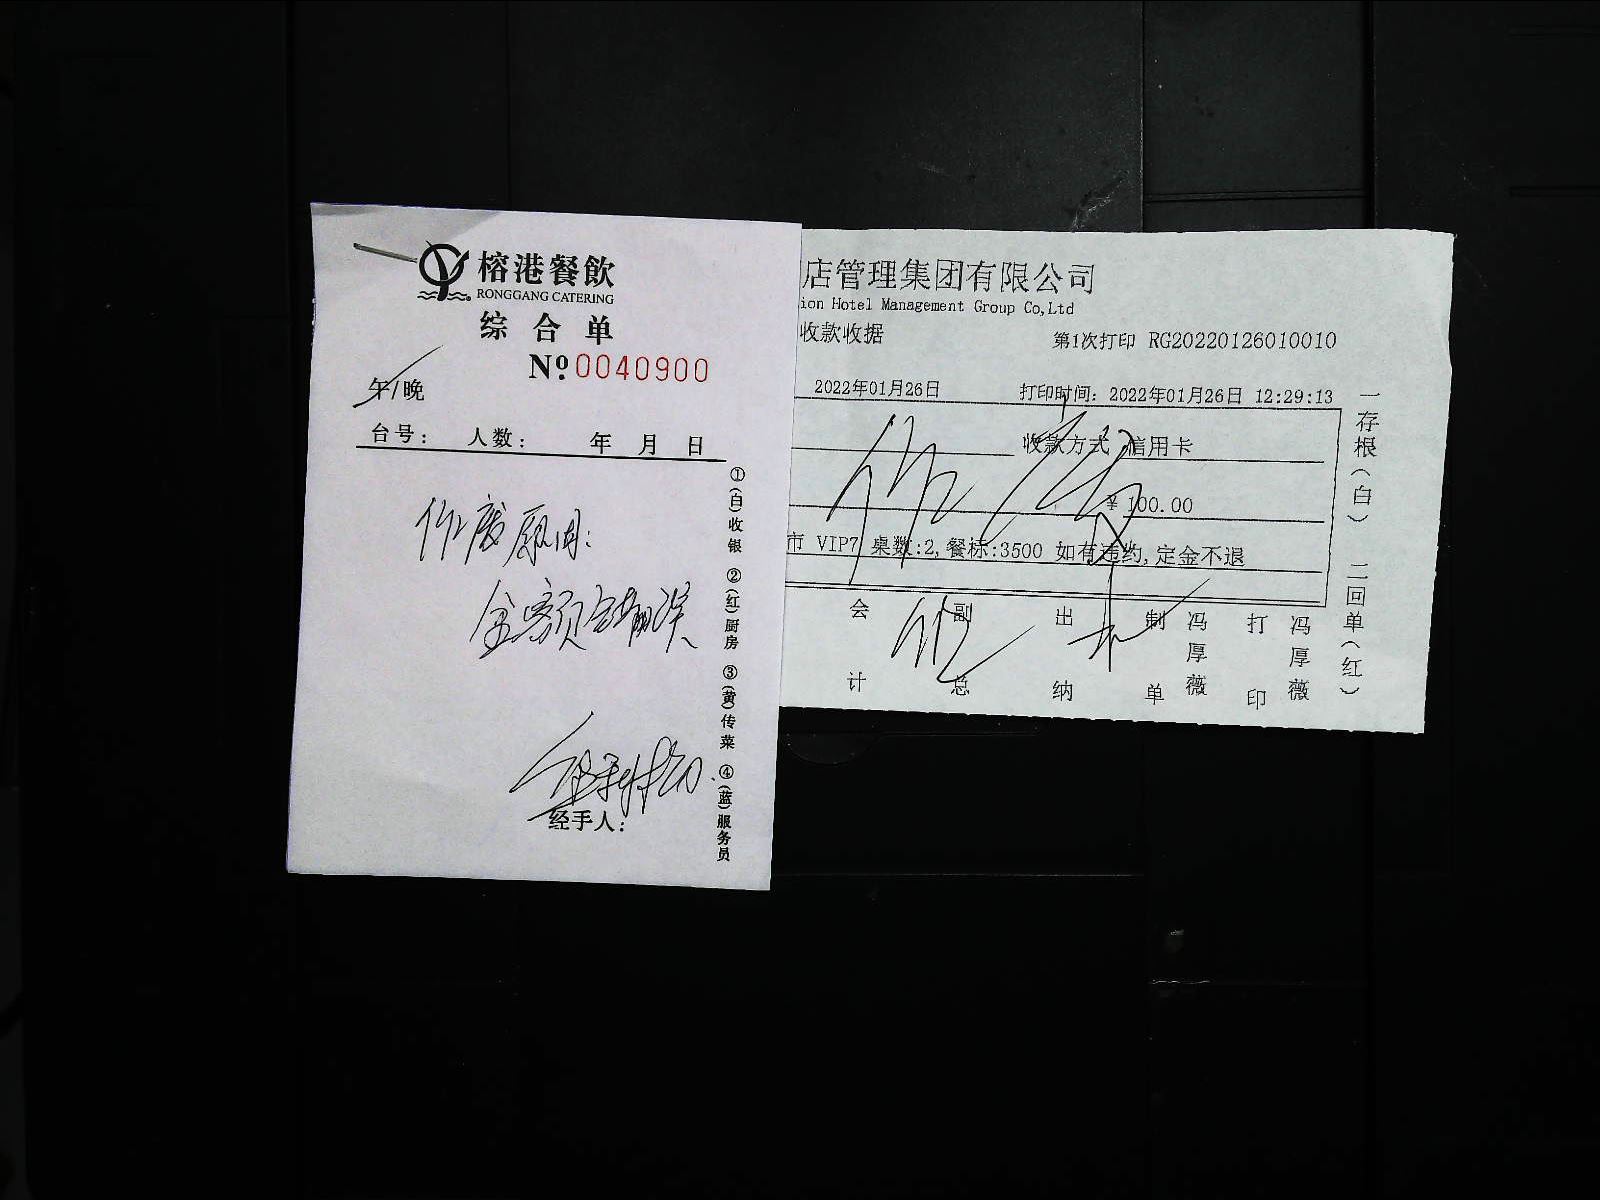 榕港餐飲
RONGGANG CATERING
综合单
№ 0040900
午/晚
台号： 人数： 年 月 日
作废原因：
金额
经手人：
①(白)收银 ②(红)厨房 ③(黄)传菜 ④(蓝)服务员
店管理集团有限公司
ion Hotel Management Group Co,Ltd
收款收据
第1次打印 RG20220126010010
2022年01月26日 打印时间：2022年01月26日 12:29:13
收款方式 信用卡
¥100.00
市 VIP7 桌数:2,餐标:3500 如有违约,定金不退
作废
会计 副总 出纳 制单 冯厚薇 打印 冯厚薇
一存根(白) 二回单(红)